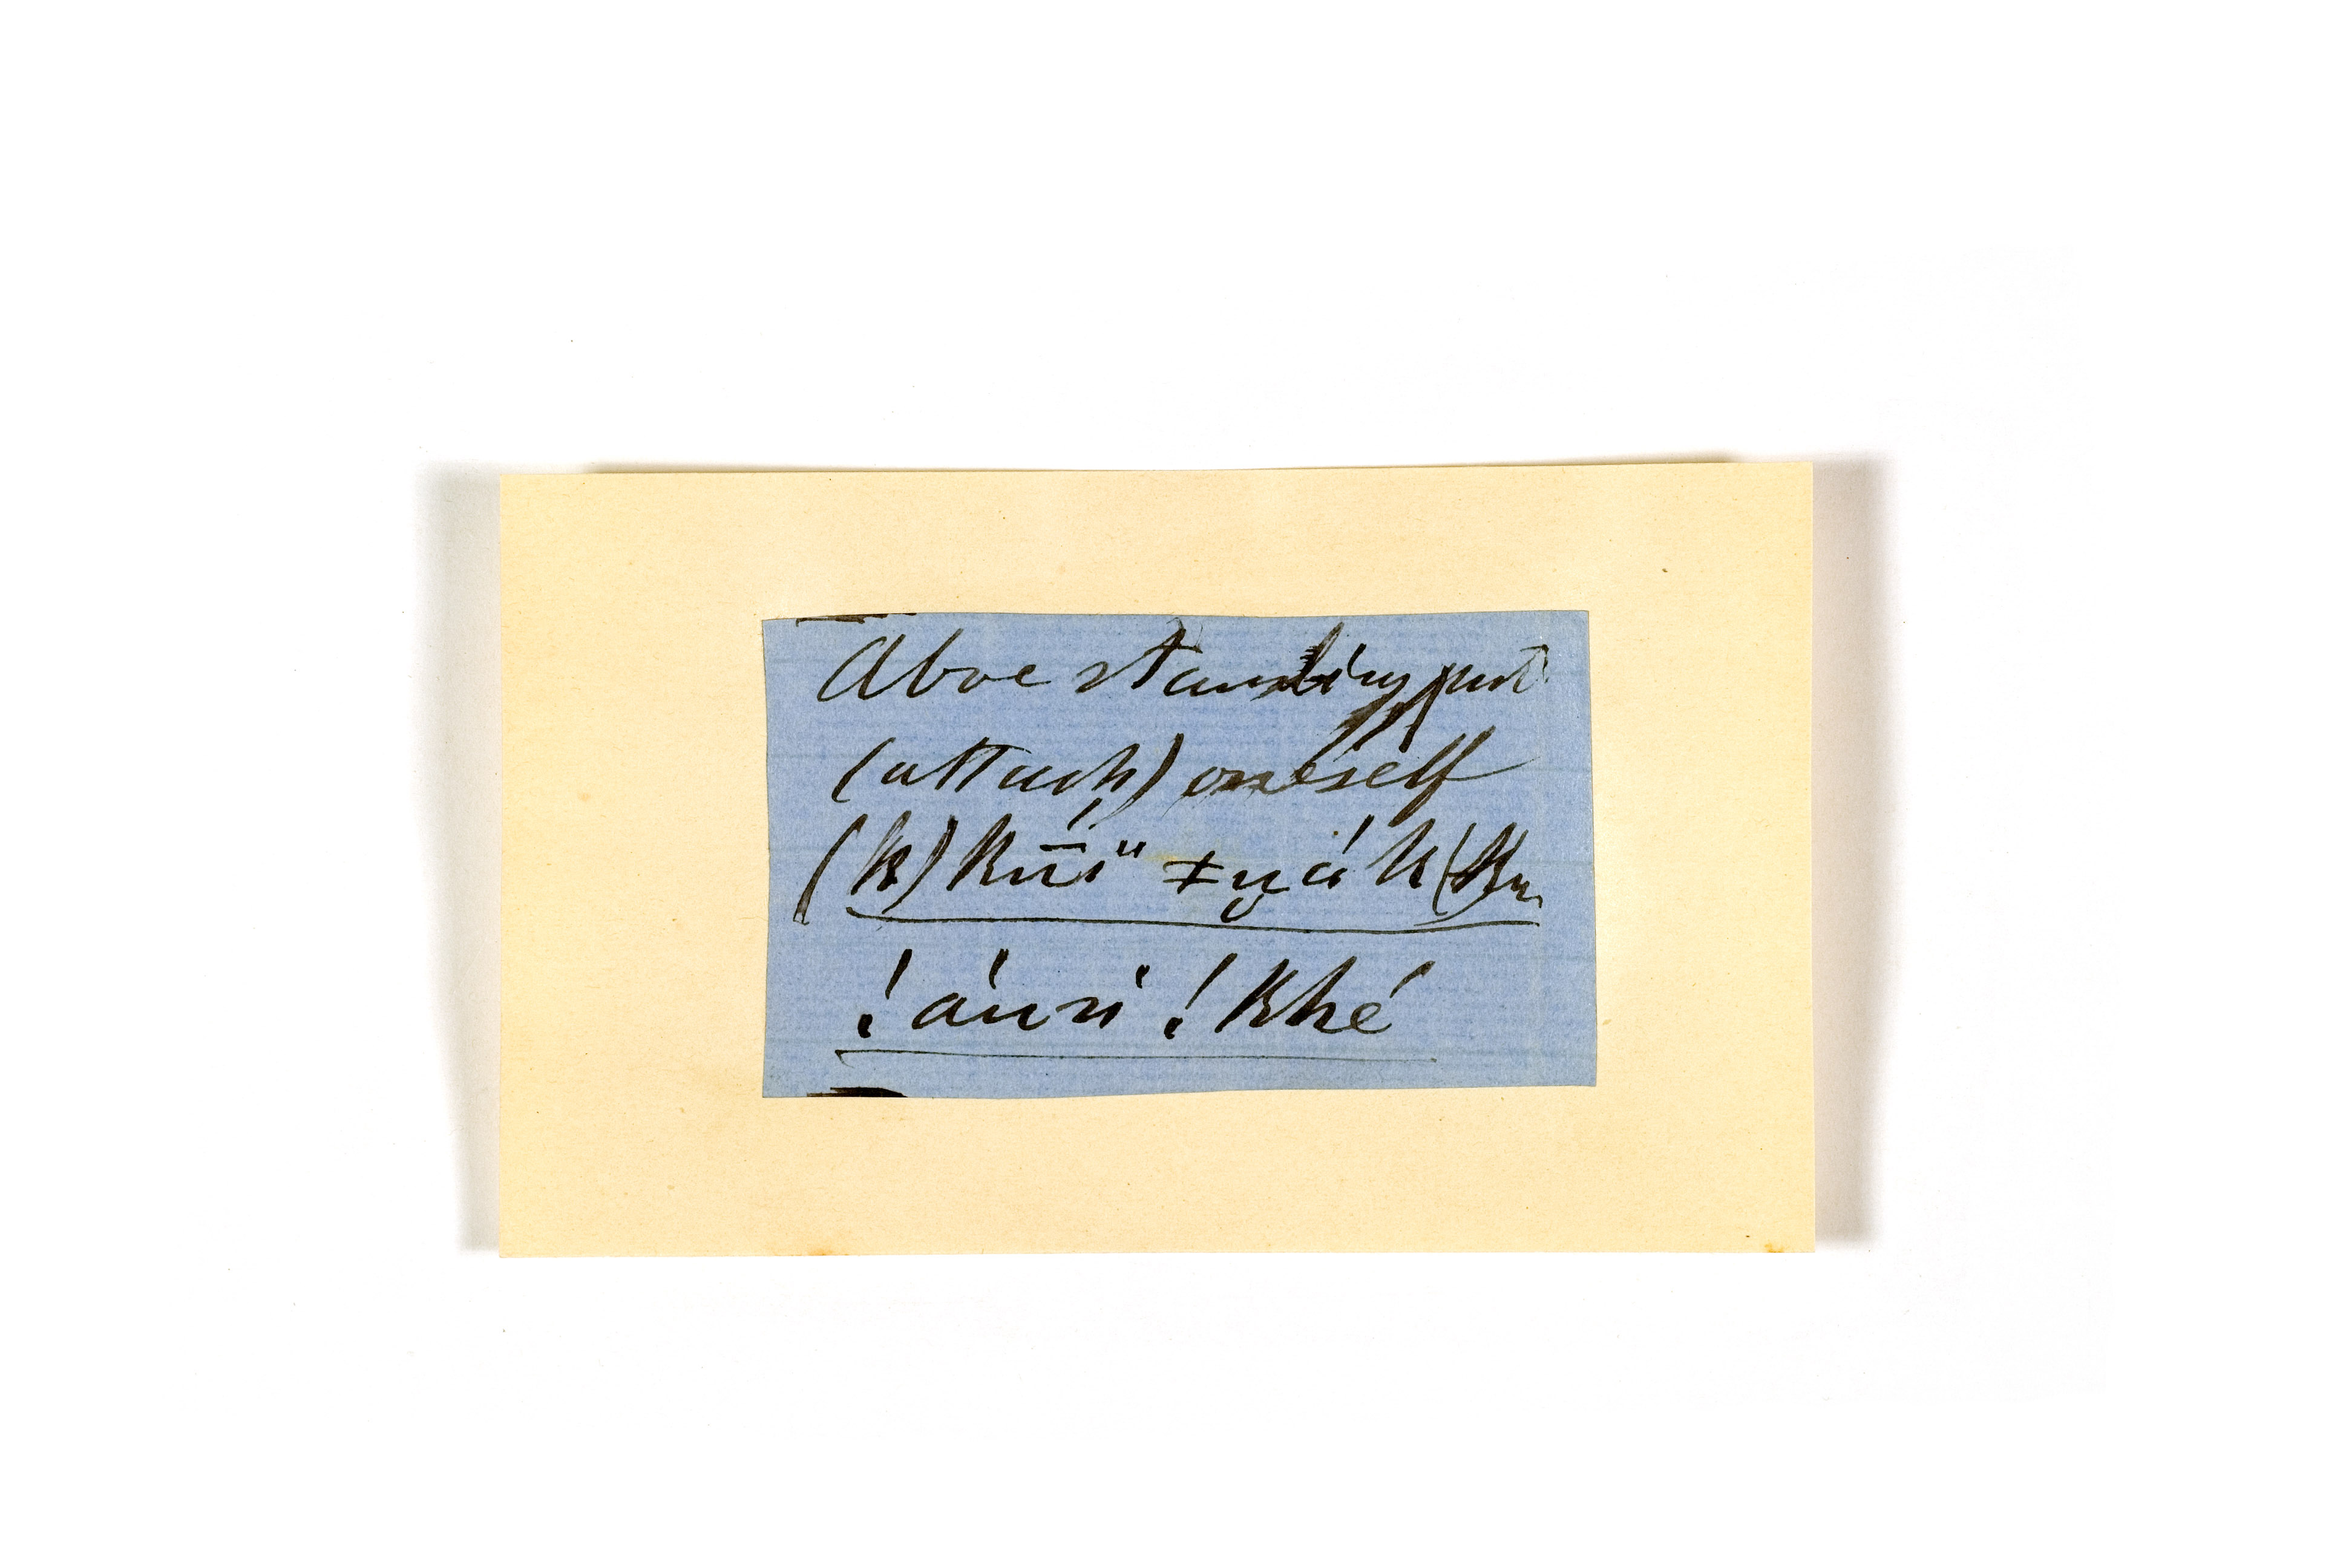 Above standing put
(attach) oneself
(k) kū́ï ǂ ụá k(ku
!áuni !khé